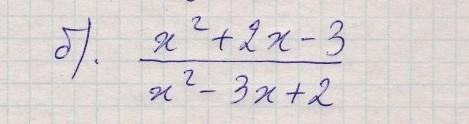 б). x² + 2x - 3
x² - 3x + 2